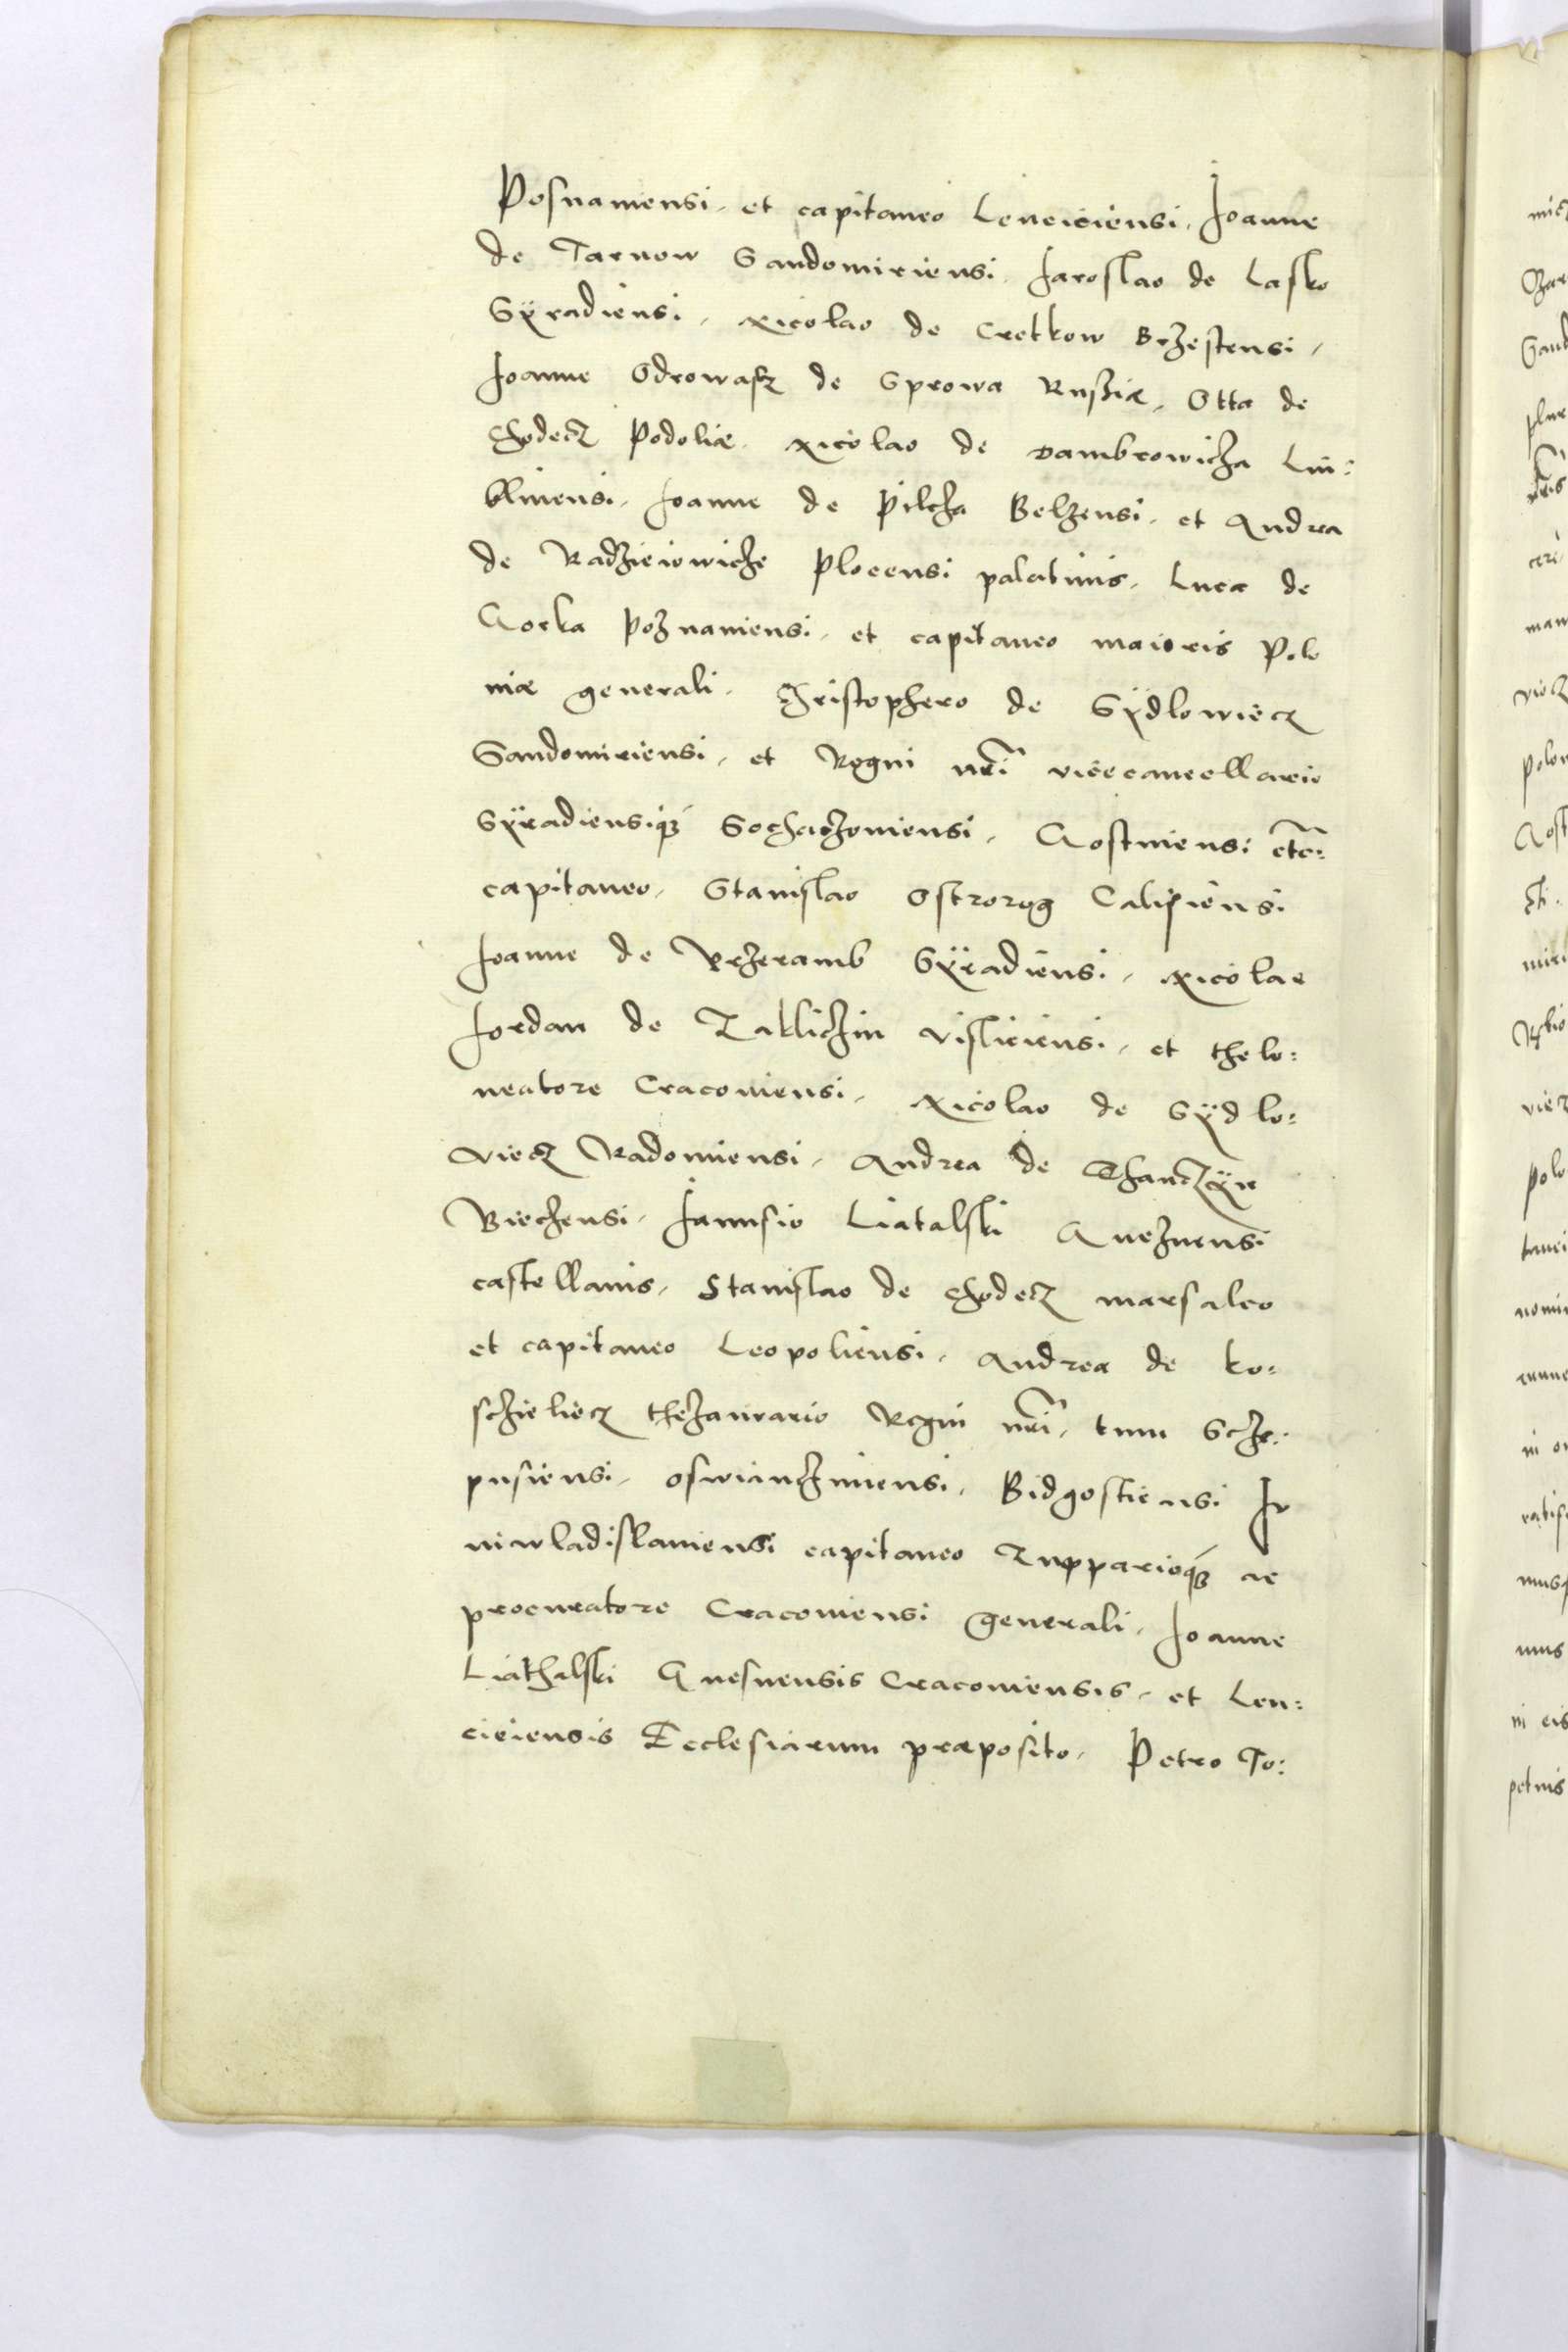 Posnaniensi, et capitaneo Lenciciensi, Joanne
de Tarnow Sandomiriensi, Jaroslao de Lasko
Syradiensi, Nicolao de Cretkow Brzestensi,
Joanne Odrowasz de Sprowa Russiæ, Otta de
Chodecz Podoliæ, Nicolao de Dambrowicza Lu:
bliniensi, Joanne de Pilcza Belzensi, et Andrea
de Radzieiowicze Plocensi palatinis, Luca de
Gorka Poznaniensi, et capitaneo maioris Polo
niæ generali, Christophero de Sÿdlowiecz
Sandomiriensi, et Regni nri̅ vicecancellario
Sÿradiensiq́ꝫ Sochaczoviensi, Gostiniensi etc̅:
capitaneo, Stanislao Ostrorog Calisiensi
Joanne de Przeramb Sÿradiensi, Nicolao
Jordan de Zaklichin Visliciensi, et thelo:
neatore Cracoviensi, Nicolao de Sÿdlo:
viecz Radomiensi, Andrea de Thanczÿn
Biechensi, Janusio Liatalski Gneznensi
castellanis, Stanislao de Chodecz marsalco
et capitaneo Leopoliensi, Andrea de Ko:
sczieliecz thezaurario Regni nri̅, tum Scze:
pusiensi, Oswianczimensi, Bidgostiensi Ju
niwladislaviensi capitaneo Zupparioq́ꝫ ac
procuratore Cracoviensi generali, Joanne
Liathalski Gnesnensis Cracoviensis, et Len:
ciciensis Ecclesiarum præposito, Petro To: